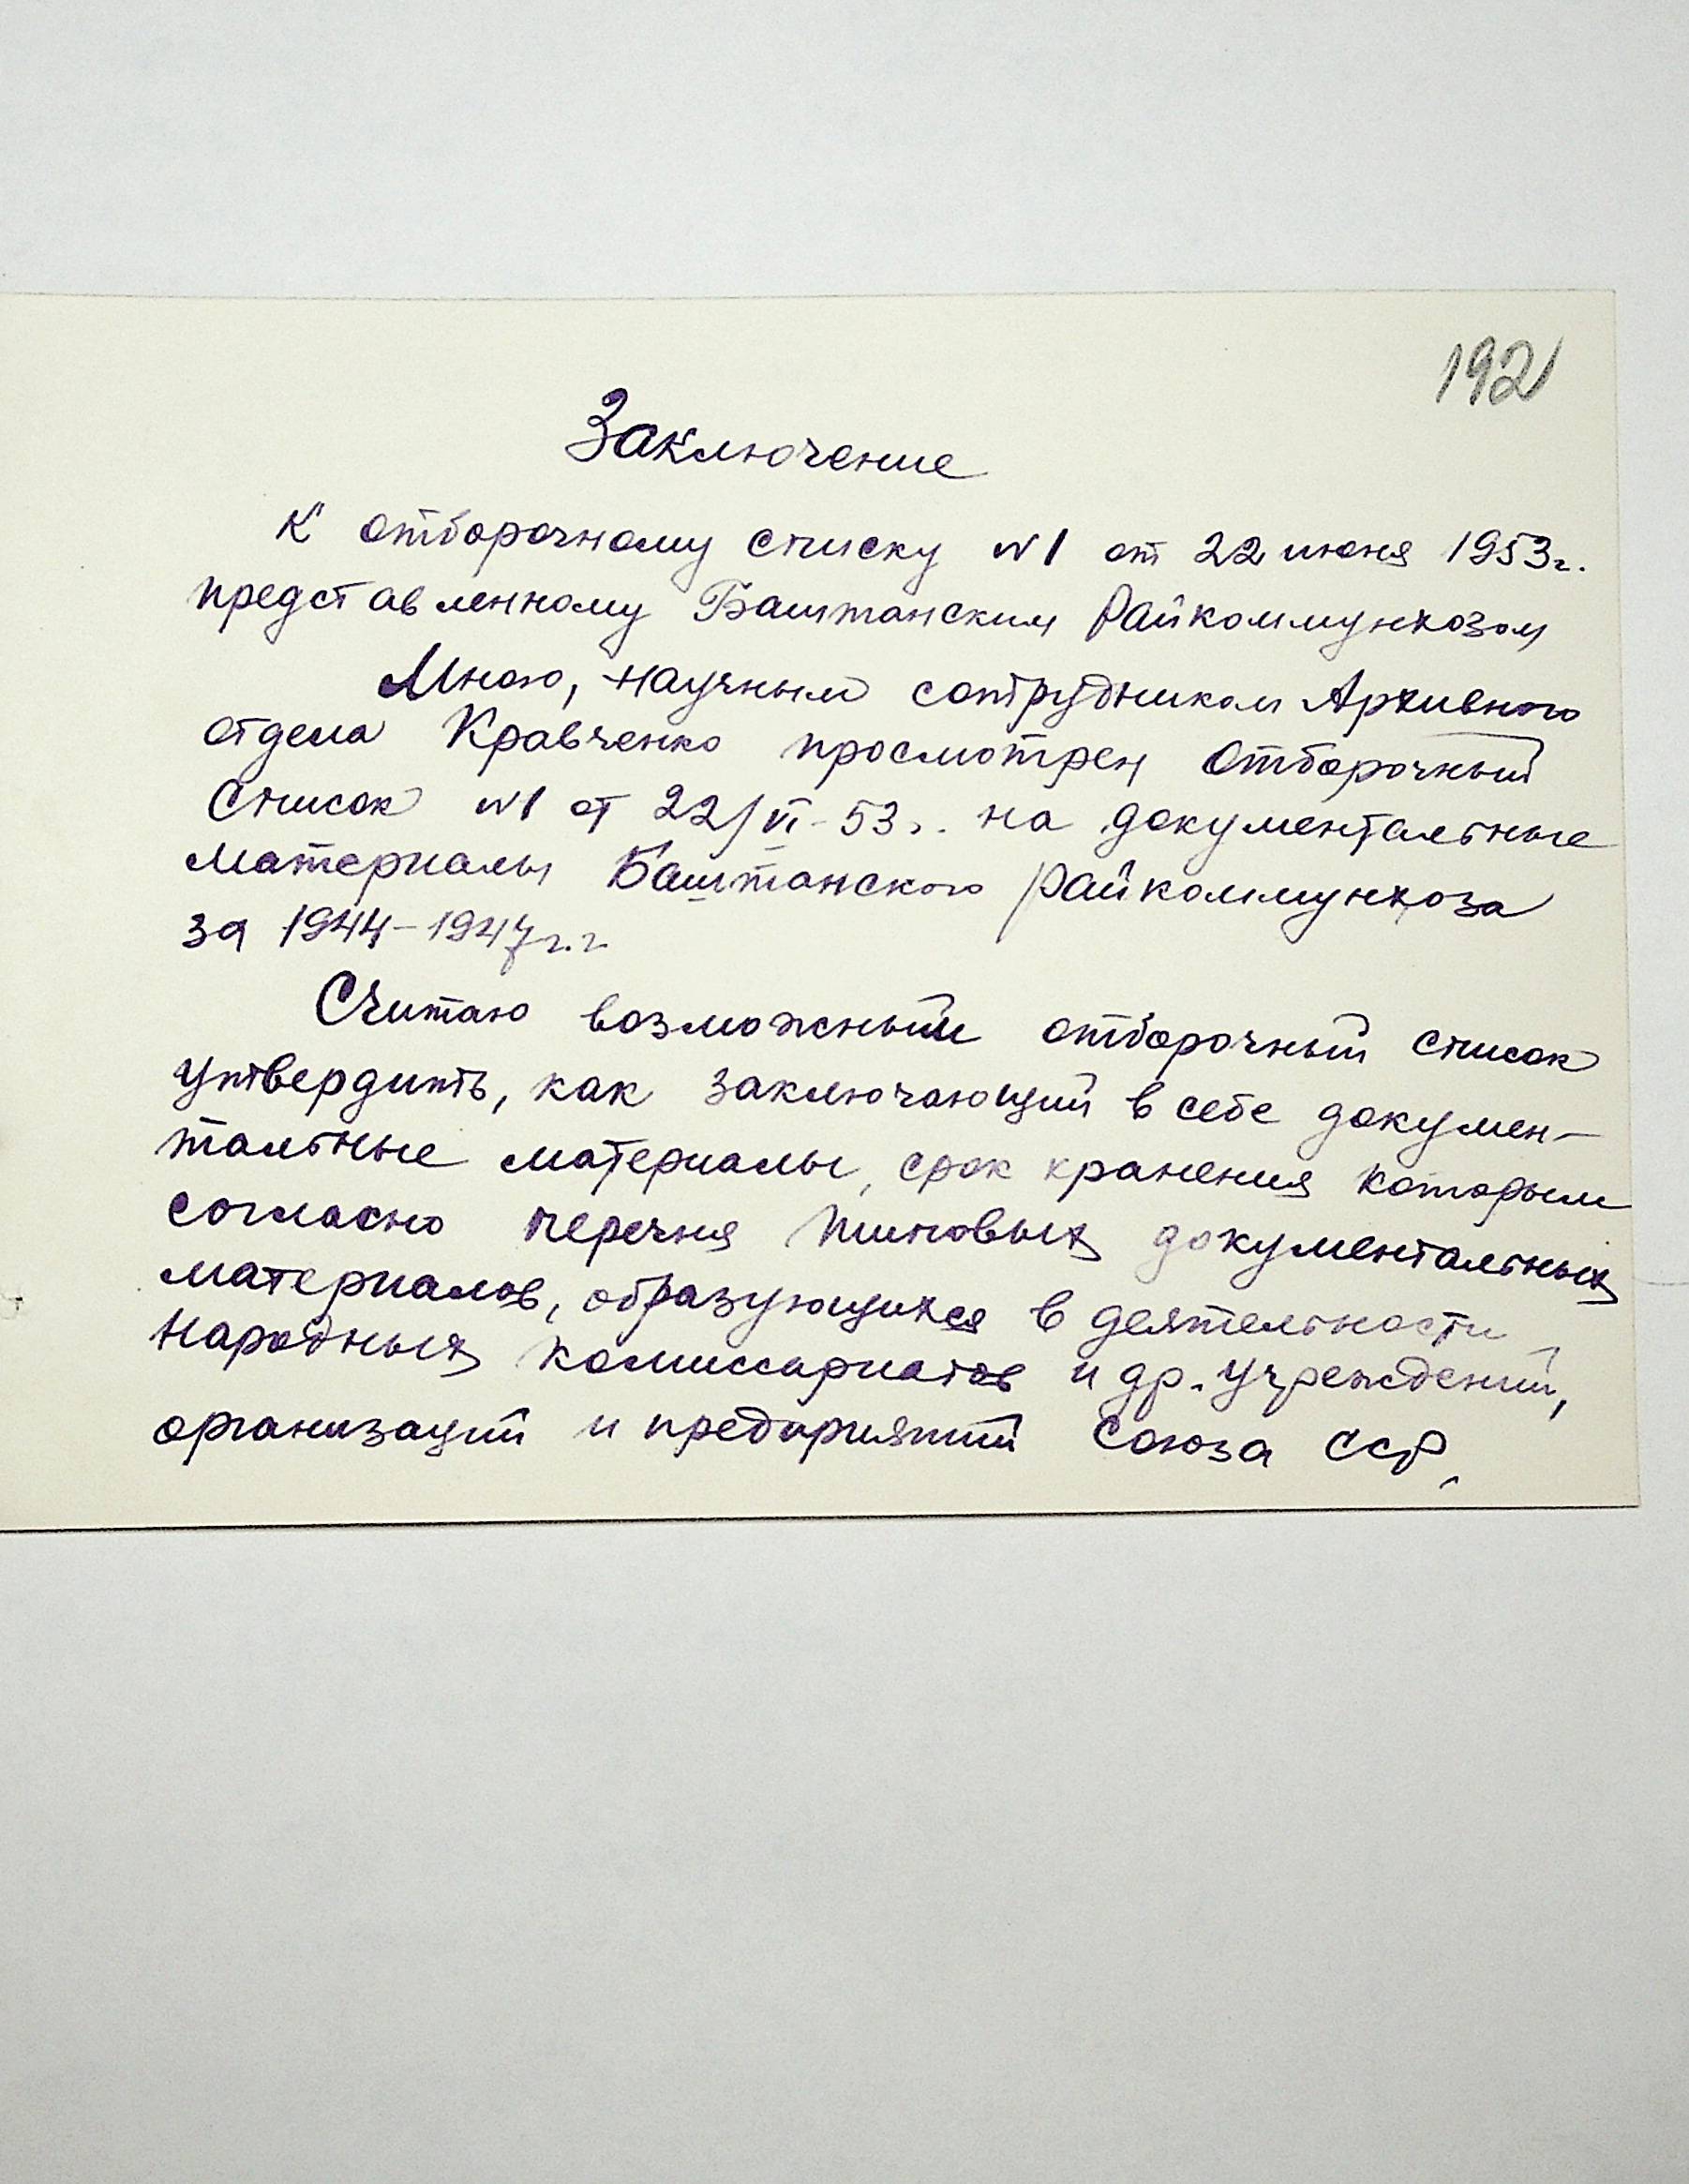 192
Заключение
К отборочному списку №1 от 22 июня 1953г.
представленному Баштанским Райкоммунхозом
Мною, научным сотрудником Архивного
отдела Кравченко просмотрен отборочный
список №1 от 22/VI-53г. на документальные
материалы Баштанского райкоммунхоза
за 1944-1947г.г.
Считаю возможным отборочный список
утвердить, как заключающий в себе докумен-
тальные материалы, срок хранения которым
согласно перечня типовых документальных
материалов, образующихся в деятельности
народных комиссариатов и др. учреждений,
организаций и предприятий Союза ССР,